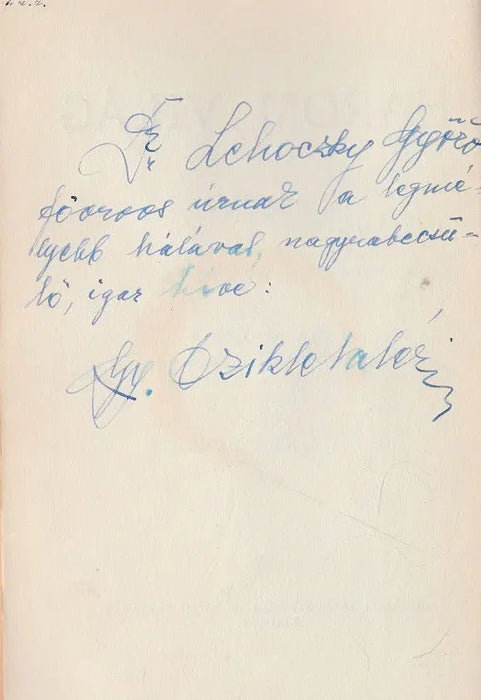 Dr Lehoczky Győző
főorvos úrnak a legmé-
lyebb hálával, nagyrabecsü-
lő, igaz híve:
Gy. Szikla